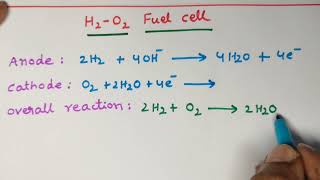 H₂-O₂ Fuel cell
Anode: 2H₂ + 4OH⁻ ⟶ 4H₂O + 4e⁻
cathode: O₂ + 2H₂O + 4e⁻ ⟶
overall reaction: 2H₂ + O₂ ⟶ 2H₂O